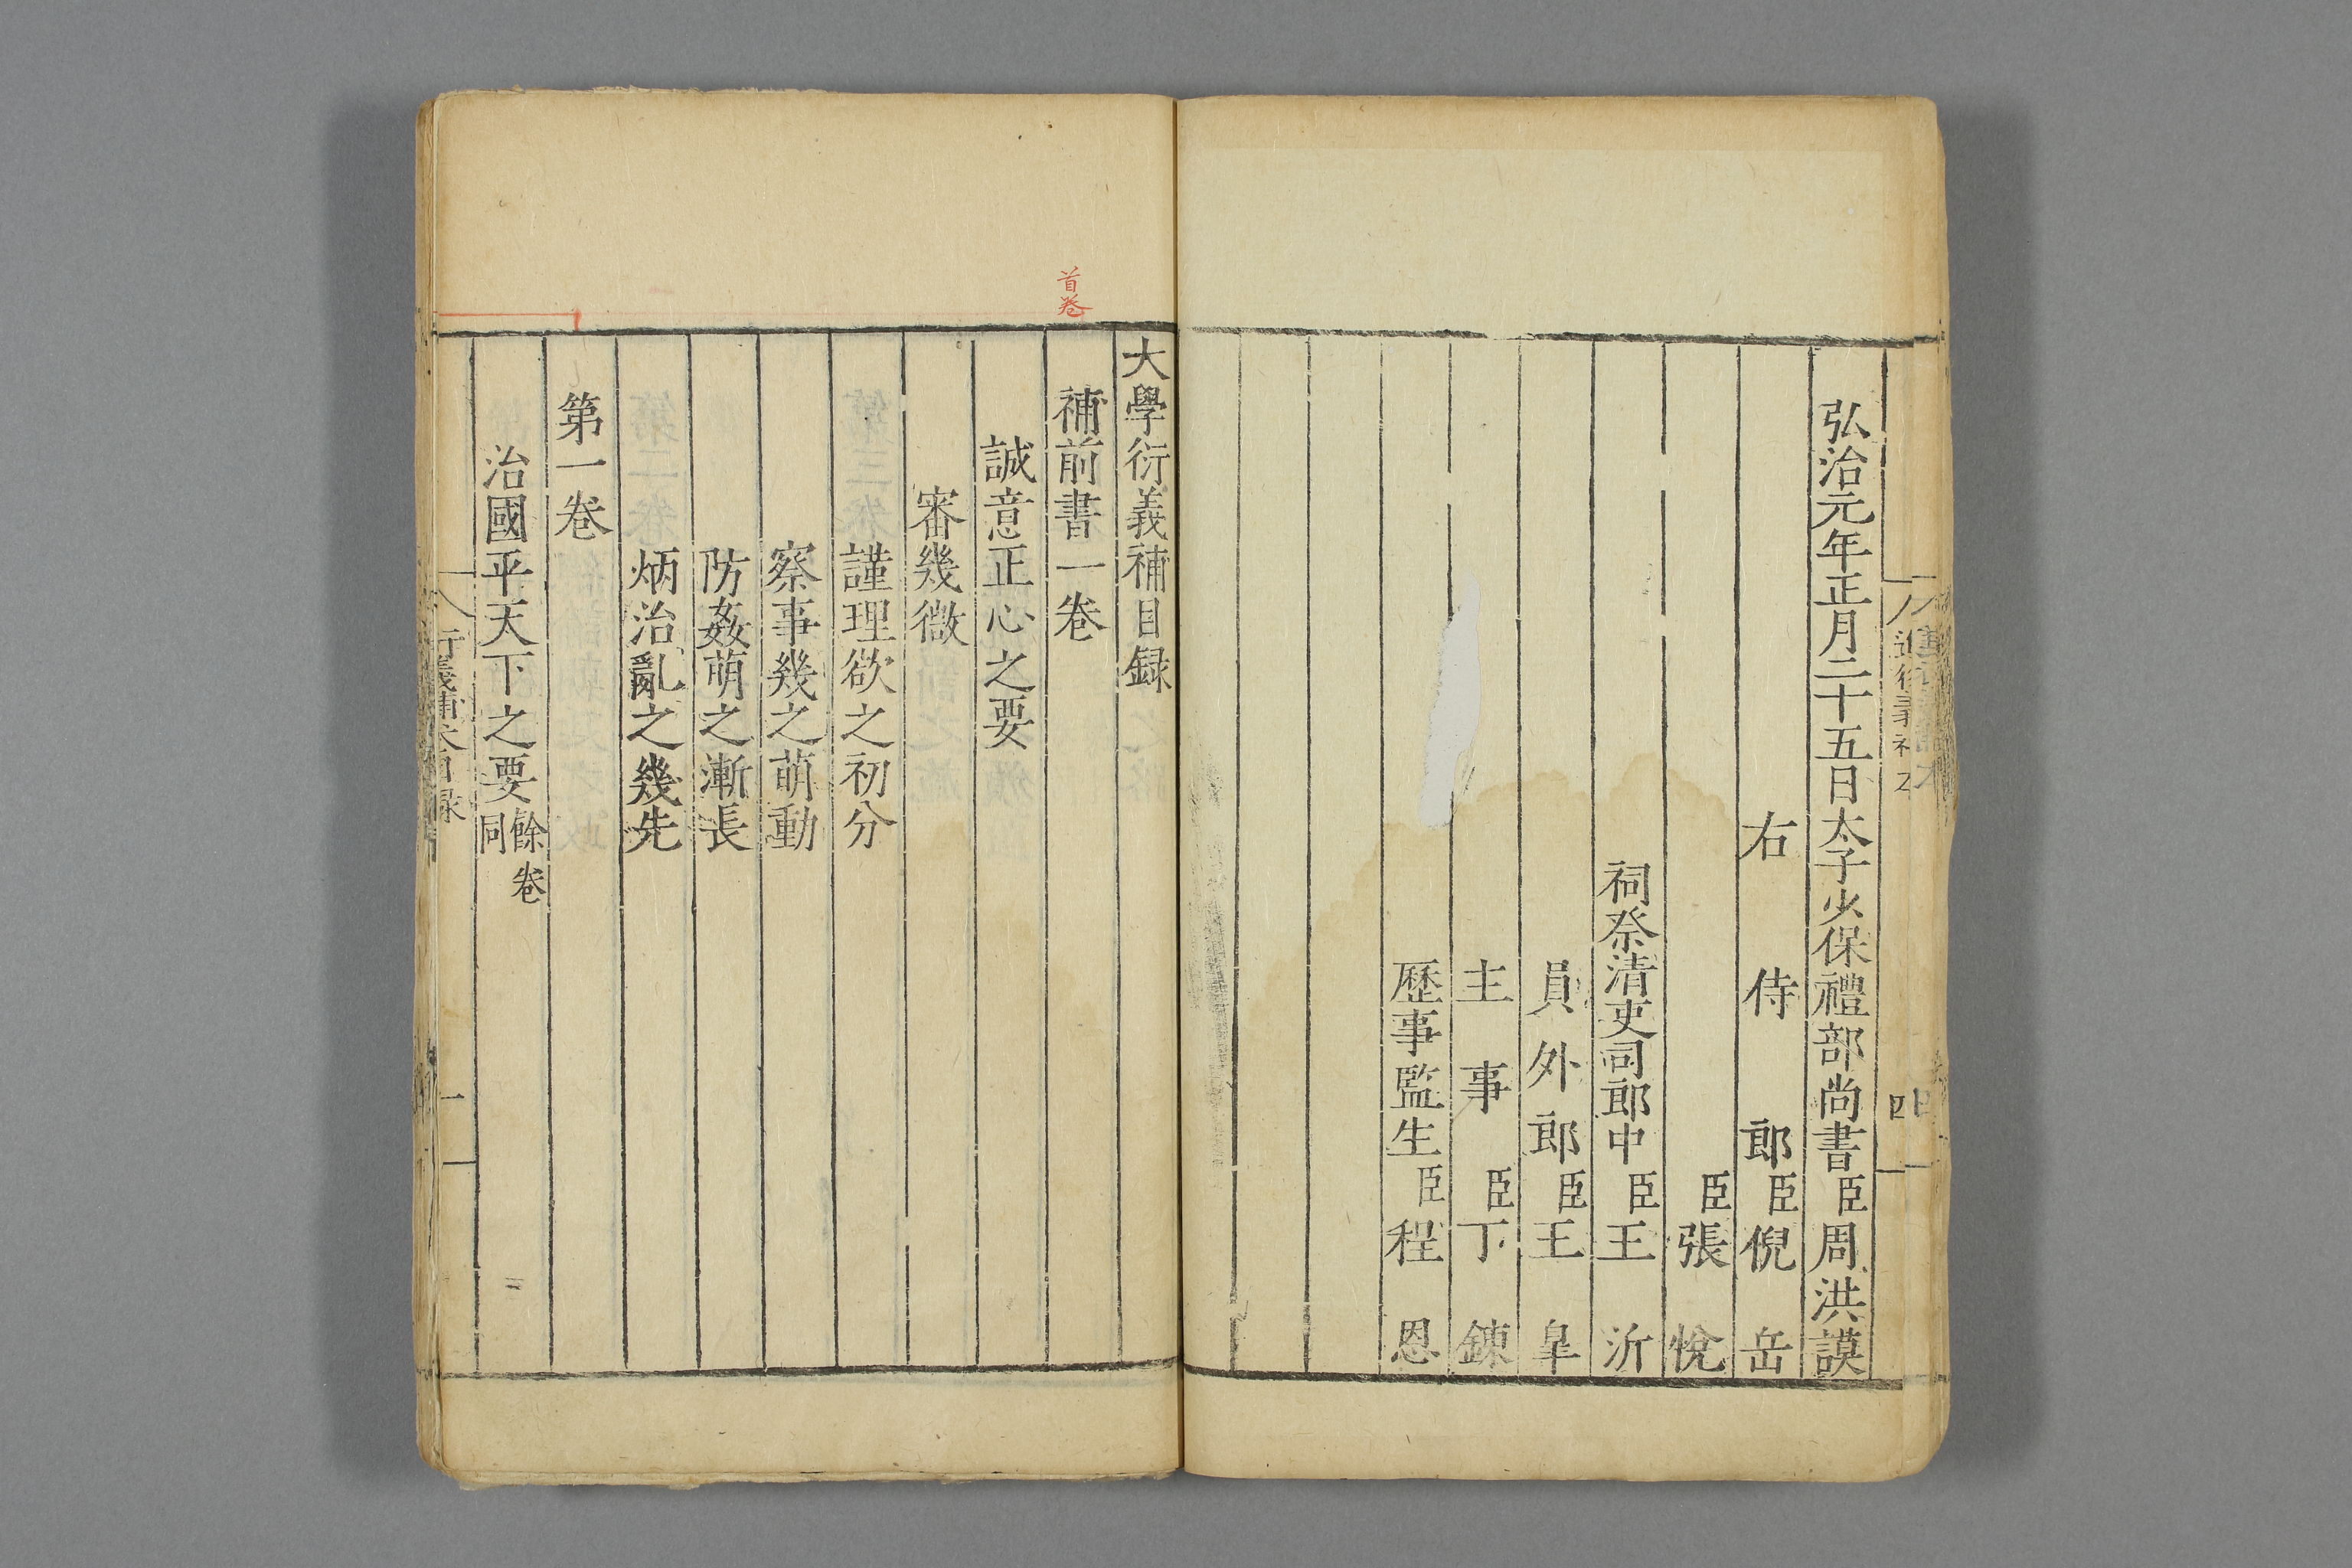 弘治元年正月二十五日太子少保禮部尚書臣周洪謨
右侍郎臣倪岳
臣張悅
祠祭清吏司郎中臣王沂
員外郎臣王皐
主事臣丁鍊
歷事監生臣程恩
四
首卷
大學衍義補目録
補前書一卷
誠意正心之要
審幾微
謹理欲之初分
察事幾之萌動
防姦萌之漸長
炳治亂之幾先
第一卷
治國平天下之要餘卷同
一